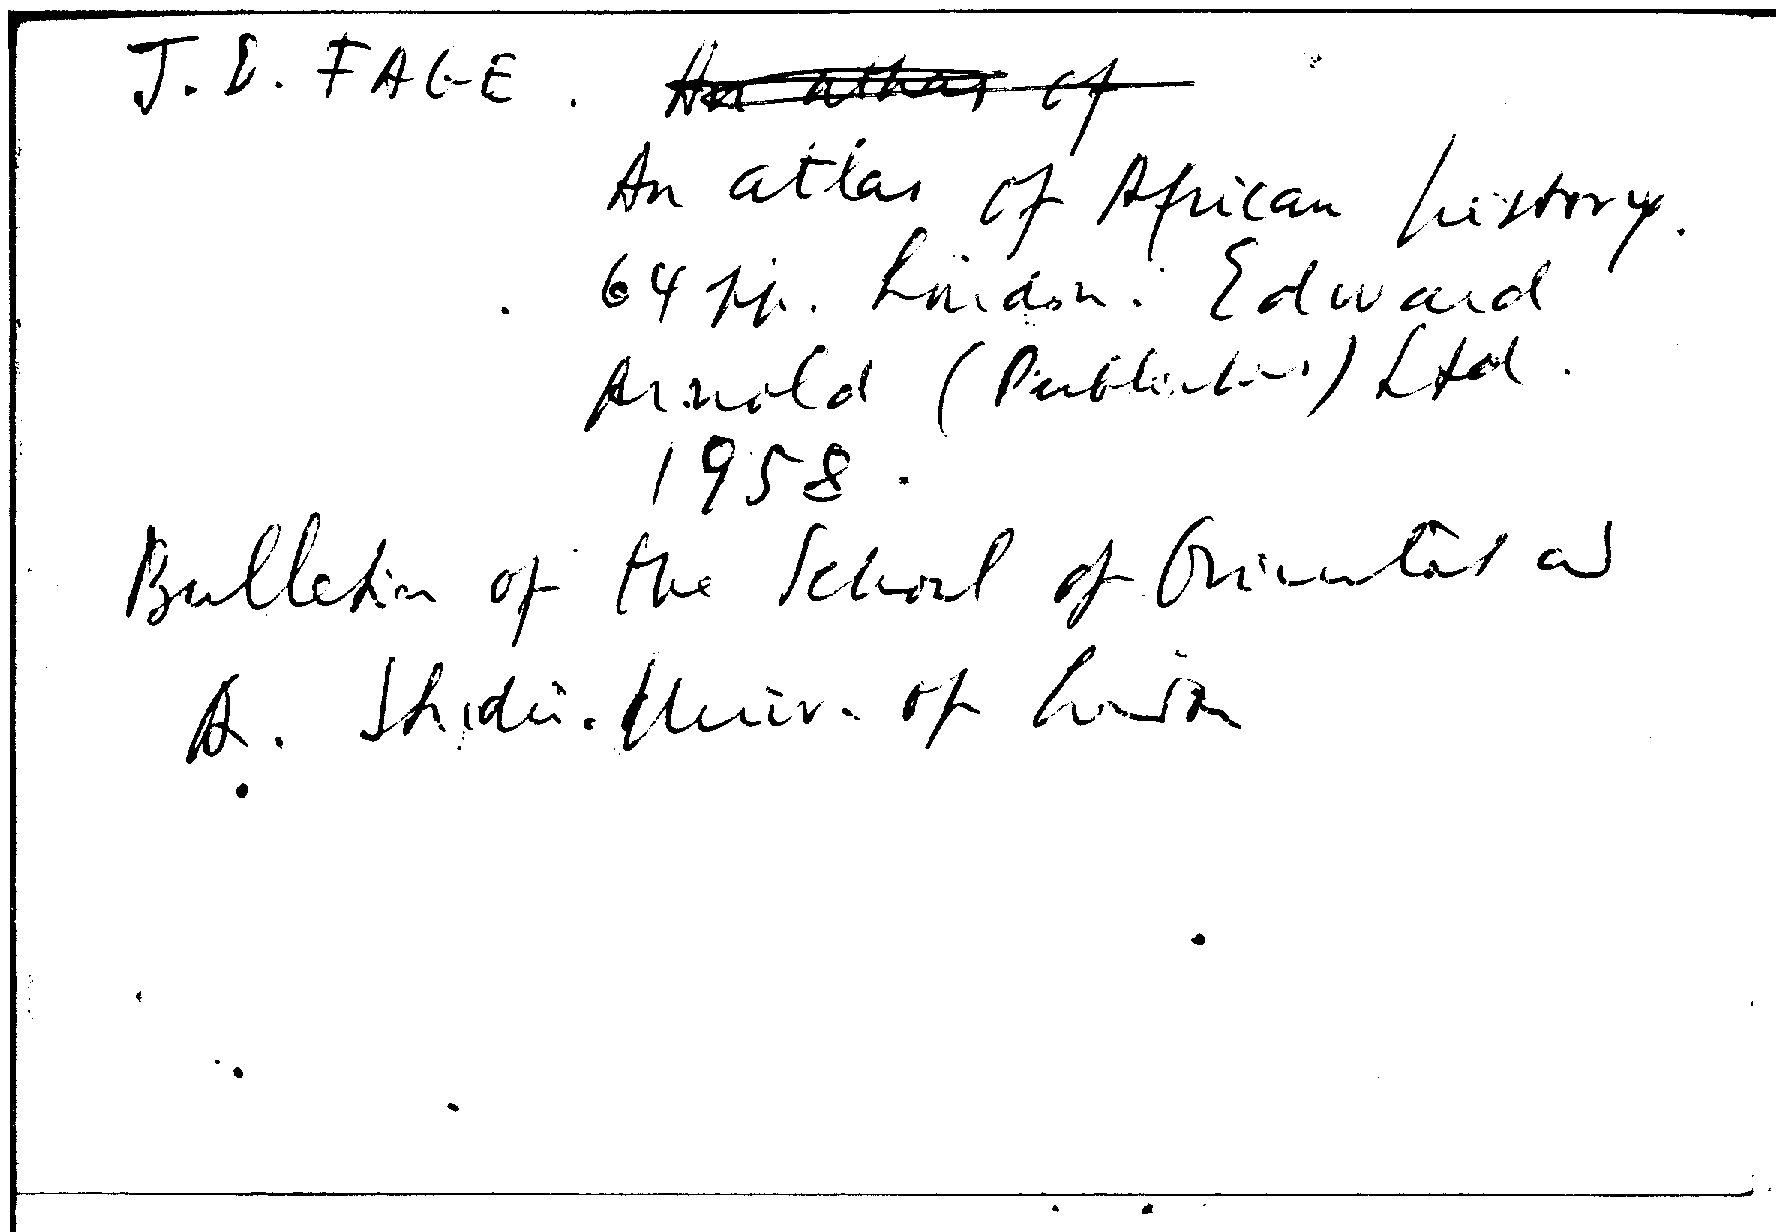 J. D. FAGE. ~~An atlas of~~
An atlas of African history.
64 pp. London: Edward
Arnold (Publishers) Ltd.
1958.
Bulletin of the School of Oriental and
A. Studies. Univ. of London